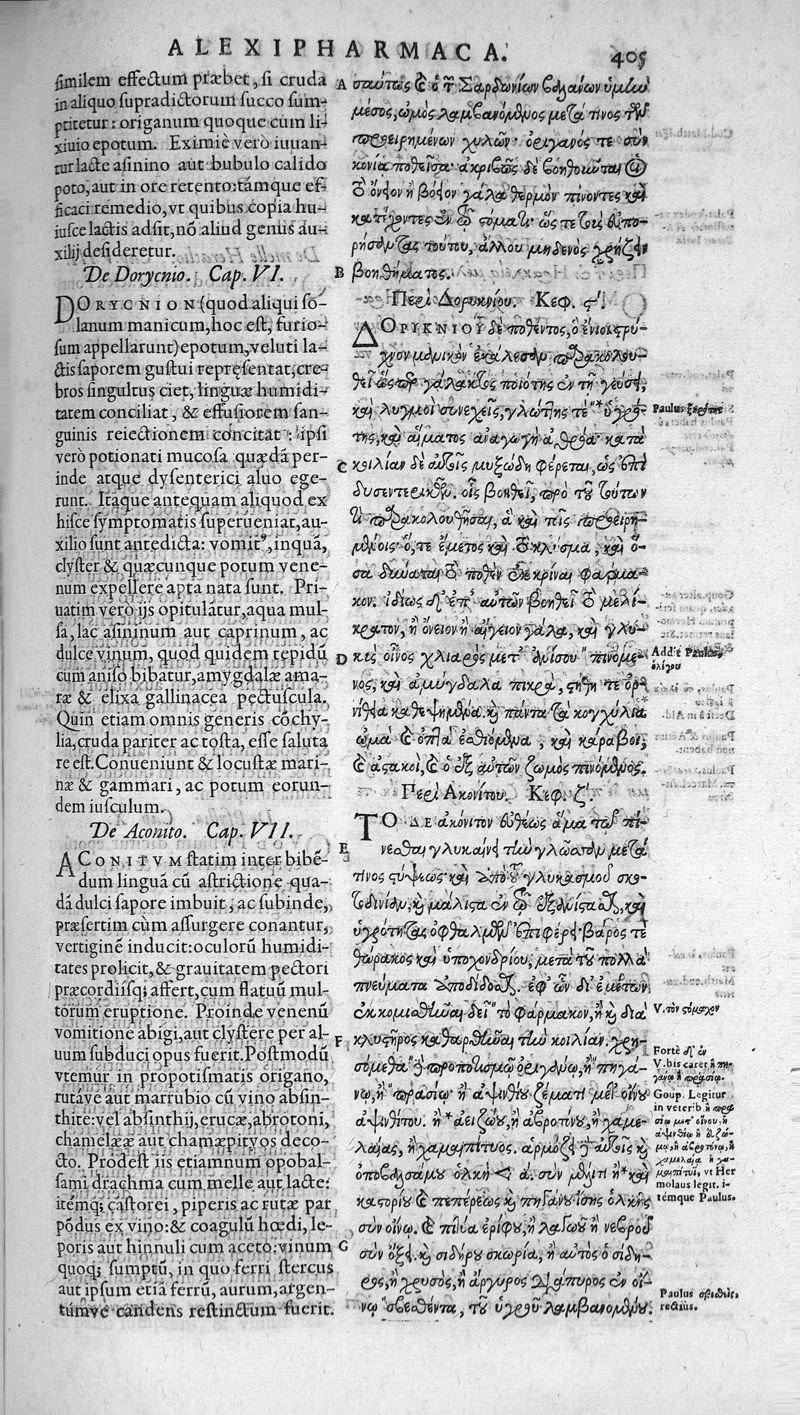 ALEXIPHARMACA. 405
similem effectum præbet, si cruda
in aliquo supradictorum succo sum-
ptitetur: origanum quoque cum li-
xiuio epotum. Eximiè verò iuuan-
tur lacte asinino aut bubulo calido
poto, aut in ore retento: támque ef-
ficaci remedio, vt quibus copia hu-
iusce lactis adsit, nō aliud genus au-
xilij desideretur.
De Dorycnio. Cap. VI.
DORYCNION (quod aliqui so-
lanum manicum, hoc est, furio-
sum appellarunt) epotum, veluti la-
ctis saporem gustui repręsentat, cre-
bros singultus ciet, linguæ humidi-
tatem conciliat, & effusiorem san-
guinis reiectionem concitat: ipsi
verò potionati mucosa quædā per-
inde atque dysenterici aluo ege-
runt. Itaque antequam aliquod ex
hisce symptomatis superueniat, au-
xilio sunt antedicta: vomitꝰ, inquā,
clyster & quæcunque potum vene-
num expellere apta nata sunt. Pri-
uatim verò ijs opitulātur, aqua mul-
sa, lac asininum aut caprinum, ac
dulce vinum, quod quidem tepidū
cum aniso bibatur, amygdalæ ama-
ræ & elixa gallinacea pectuscula.
Quin etiam omnis generis cōchy-
lia, cruda pariter ac tosta, esse saluta
re est. Conueniunt & locustæ mari-
næ & gammari, ac potum eorun-
dem iusculum.
De Aconito. Cap. VII.
ACONITVM statim inter bibē-
dum linguā cū astrictione qua-
dā dulci sapore imbuit, ac subinde,
præsertim cùm assurgere conantur,
vertiginē inducit: oculorū humidi-
tates prolicit, & grauitatem pectori
præcordiisq; affert, cum flatuū mul-
torum eruptione. Proinde venenū
vomitione abigi, aut clystere per al-
uum subduci opus fuerit. Postmodū
vtemur in propotismatis origano,
rutáve aut marrubio cū vino absin-
thite: vel absinthij, erucæ, abrotoni,
chamelææ aut chamæpityos deco-
cto. Prodest iis etiamnum opobal-
sami drachma cum melle aut lacte:
itémq; castorei, piperis ac rutæ par
pōdus ex vino: & coagulū hœdi, le-
poris aut hinnuli cum aceto: vinum
quoq; sumptū, in quo ferri stercus
aut ipsum etiā ferrū, aurum, argen-
túmve candens restinctum fuerit.
A
B
C
D
E
F
G
σταύτως ϗ ὁ τ̃ Σαρδωνίων βαλάνων
μέσος, ὠμὸς λαμβανόμενος μετά τινος τῶν
προειρημένων χυλῶν· ὀρίγανός τε σὺν
κονίᾳ ποθεῖσα· ἀκριβῶς δὲ βοηθοῦνται
τὸ ὄνειον ἢ βόειον γάλα θερμὸν πίνοντες καὶ
κατέχοντες ἐν τῷ στόματι· ὥς τε τοὺς εὐπο-
ρήσοντας τούτου, ἄλλου μηδενὸς χρῄζειν
βοηθήματος.
Περὶ Δορυκνίου. Κεφ. ϛʹ.
ΔΟΡΥΚΝΙΟΥ δὲ ποθέντος, ὃ ἔνιοι στρύ-
χνον μανικὸν ἐκάλεσαν, παρακολου-
θεῖ ὥσπερ γάλακτος ποιότης ἐν τῇ γεύσει,
καὶ λυγμοὶ συνεχεῖς, γλώττης τε *ὑγρό-
της, καὶ αἵματος ἀναγωγὴ ἀθρόα· κατὰ
κοιλίαν δὲ αὐτοῖς μυξώδη φέρεται, ὡς ἐπὶ
δυσεντερικῶν. οἷς βοηθεῖ, πρὸ τοῦ τούτων
τι παρακολουθῆσαι, ἃ καὶ τοῖς προειρη-
μένοις· ὅ, τε ἔμετος καὶ τὸ κλύσμα, καὶ ὅ-
σα δύναται τὸ ποθὲν ἐκκρῖναι φάρμα-
κον. ἰδίως δ' ἐπ' αὐτῶν βοηθεῖ τὸ μελί-
κρατον, ἢ ὄνειον ἢ αἴγειον γάλα, καὶ γλυ-
κὺς οἶνος χλιαρὸς μετ' ἀνίσου* πινόμε-
νος, καὶ ἀμύγδαλα πικρὰ, στήθη τε ὀρ-
νίθεια καθεψημένα. ϗ πάντα τὰ κογχύλια
ὠμὰ ϗ ὀπτὰ ἐσθιόμενα, καὶ κάραβοι,
ϗ ἀστακοὶ, ϗ ὁ ἐξ αὐτῶν ζωμὸς πινόμενος.
Περὶ Ἀκονίτου. Κεφ. ζʹ.
ΤΟ ΔΕ ἀκόνιτον εὐθέως ἅμα τῷ πί-
νεσθαι γλυκαίνει τὴν γλῶσσαν μετά
τινος στύψεως· καὶ ὑπὸ γλυκασμοῦ σκο-
τοδινίαν, ϗ μάλιστα ἐν τῷ ἐξανίστασθαι, καὶ
ὑγρότητας ὀφθαλμῶν ἐπιφέρει· βάρος τε
θώρακος καὶ ὑποχονδρίου, μετὰ τοῦ πολλὰ
πνεύματα ὑποδίδοσθαι. ἐφ' ὧν δι' ἐμέτων
ἐκκομισθῆναι δεῖ τὸ φάρμακον, ἢ ϗ διὰ
κλυστῆρος καθαρθῆναι τὴν κοιλίαν. χρη-
σόμεθα προποτισμῷ ὀριγάνῳ, ἢ πηγά-
νῳ, ἢ πρασίῳ· ἢ ἀψινθίου ζέματι μετ' οἴνου
ἀψινθίτου. ἢ *ἀειζώου, ἢ ἀβροτόνου, ἢ χαμε-
λαίας, ἢ χαμαιπίτυος. ἁρμόζει αὐτοῖς ϗ
ὀποβαλσάμου ὁλκὴ < α. σὺν μέλιτι ἢ* καὶ
καστορίου ϗ πεπέρεως ϗ πηγάνου ἴσης ὁλκῆς
σὺν οἴνῳ. ϗ πιτύα ἐρίφου, ἢ λαγωοῦ ἢ νεβροῦ
σὺν ὄξει. ϗ σιδήρου σκωρία, ἢ αὐτὸς ὁ σίδη-
ρος, ἢ χρυσὸς, ἢ ἄργυρος διάπυρος ἐν οἴ-
νῳ σβεσθέντα, τοῦ ὑγροῦ λαμβανομένου.
Paulus ξηρότης
Adde Paulus,
ὀλίγου
V. τὸν στόμαχον
Forte δ' ἐν
V. bis caret ἢ πη-
γάνῳ ἢ πρασίῳ.
Goup. Legitur
in veter. b. ἢ πρασ
maolaus legit. i-
témque Paulus.
Paulus
rectius.